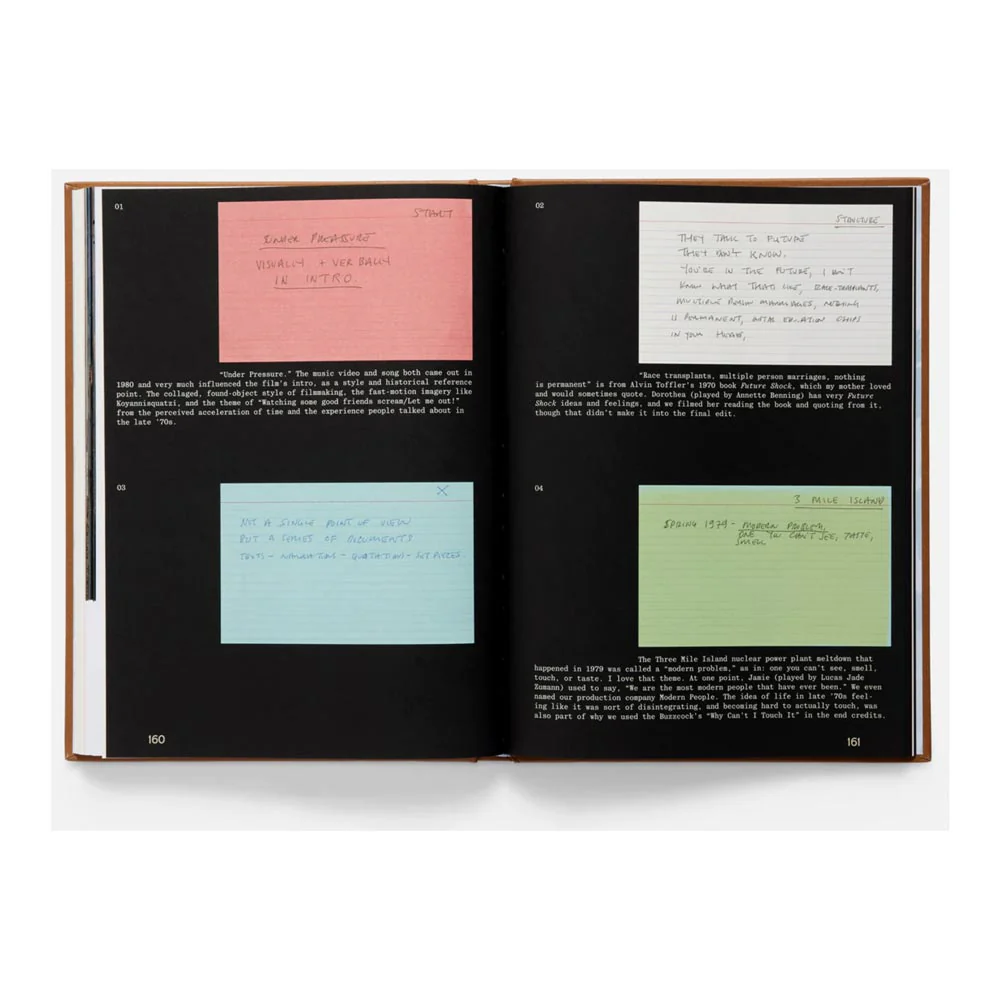 01
START
UNDER PREASSURE
VISUALLY + VERBALLY
IN INTRO.
"Under Pressure." The music video and song both came out in
1980 and very much influenced the film's intro, as a style and historical reference
point. The collaged, found-object style of filmmaking, the fast-motion imagery like
Koyannisquatzi, and the theme of "Watching some good friends scream/Let me out!"
from the perceived acceleration of time and the experience people talked about in
the late '70s.
03
X
NOT A SINGLE POINT OF VIEW
BUT A SERIES OF DOCUMENTS
TEXTS - NARRATIONS - QUOTATIONS - SET PIECES.
160
02
STRUCTURE
THEY TALK TO FUTURE
THEY DON'T KNOW.
YOU'RE IN THE FUTURE, I DON'T
KNOW WHAT THATS LIKE,
MULTIPLE PERSON MARRIAGES, NOTHING
IS PERMANENT, CHIPS
IN YOUR
"Race transplants, multiple person marriages, nothing
is permanent" is from Alvin Toffler's 1970 book Future Shock, which my mother loved
and would sometimes quote. Dorothea (played by Annette Benning) has very Future
Shock ideas and feelings, and we filmed her reading the book and quoting from it,
though that didn't make it into the final edit.
04
3 MILE ISLAND
SPRING 1979 - MODERN PROBLEM,
ONE YOU CAN'T SEE, TASTE,
SMELL
The Three Mile Island nuclear power plant meltdown that
happened in 1979 was called a "modern problem," as in: one you can't see, smell,
touch, or taste. I love that theme. At one point, Jamie (played by Lucas Jade
Zumann) used to say, "We are the most modern people that have ever been." We even
named our production company Modern People. The idea of life in late '70s feel-
ing like it was sort of disintegrating, and becoming hard to actually touch, was
also part of why we used the Buzzcock's "Why Can't I Touch It" in the end credits.
161